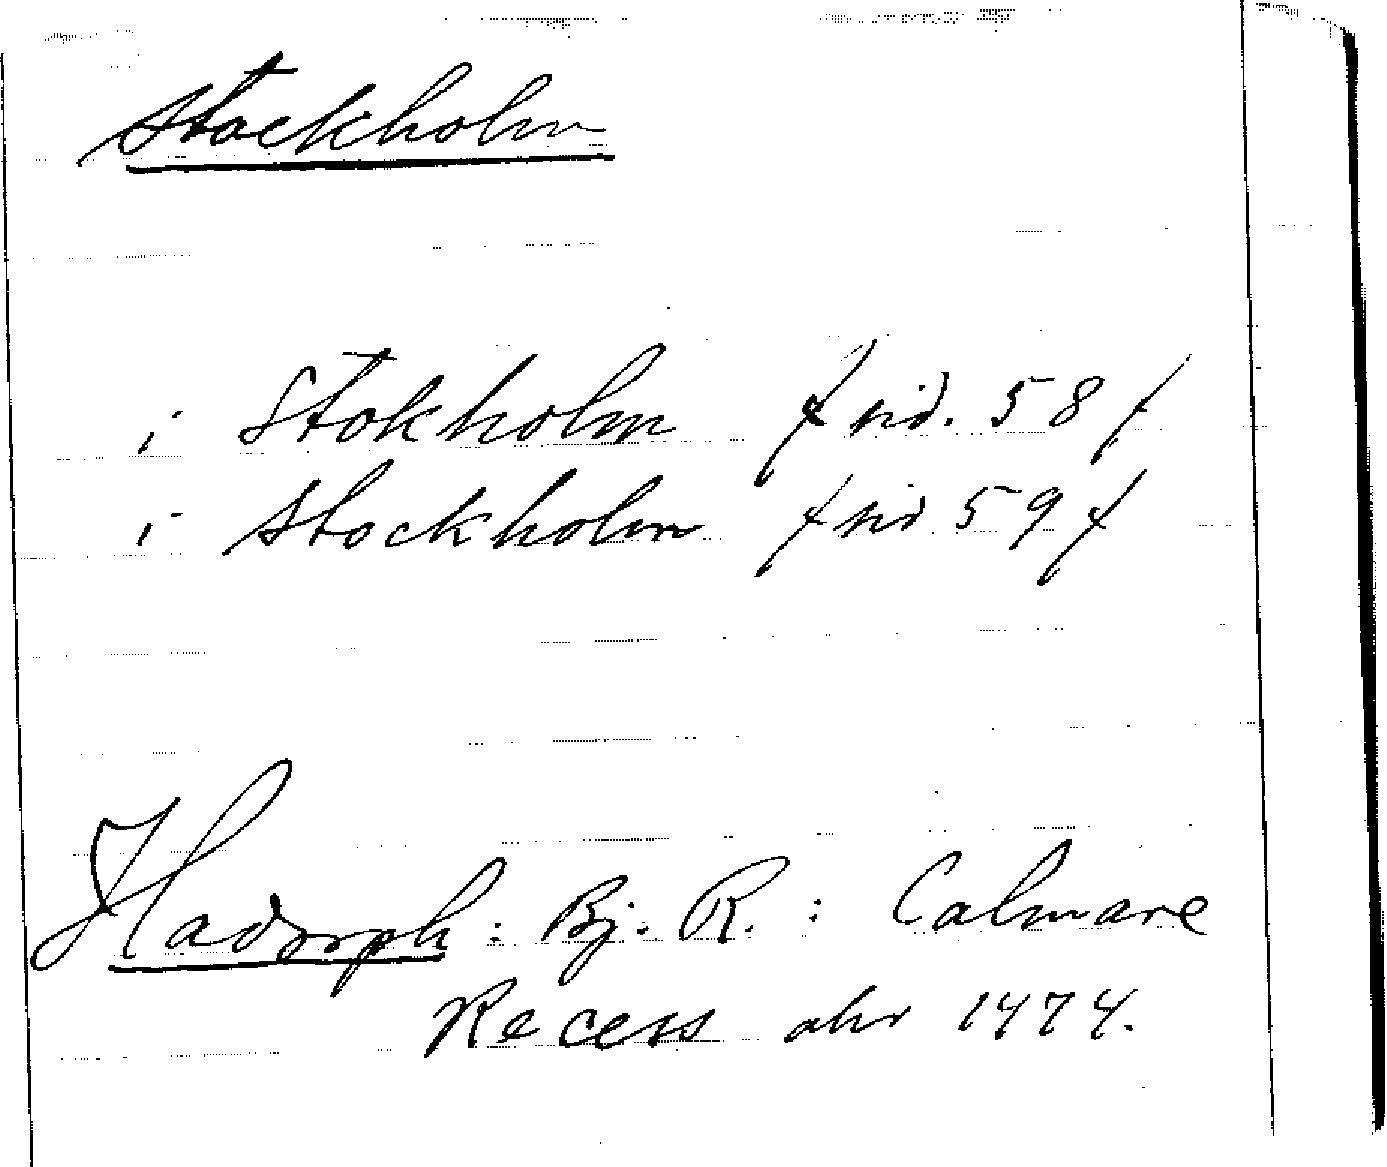 Stockholm
i Stokholm / sid. 58 /
i Stockholm / sid 59 /
Hadorph: Bj. R. : Calmare
Recess ahr 1474.